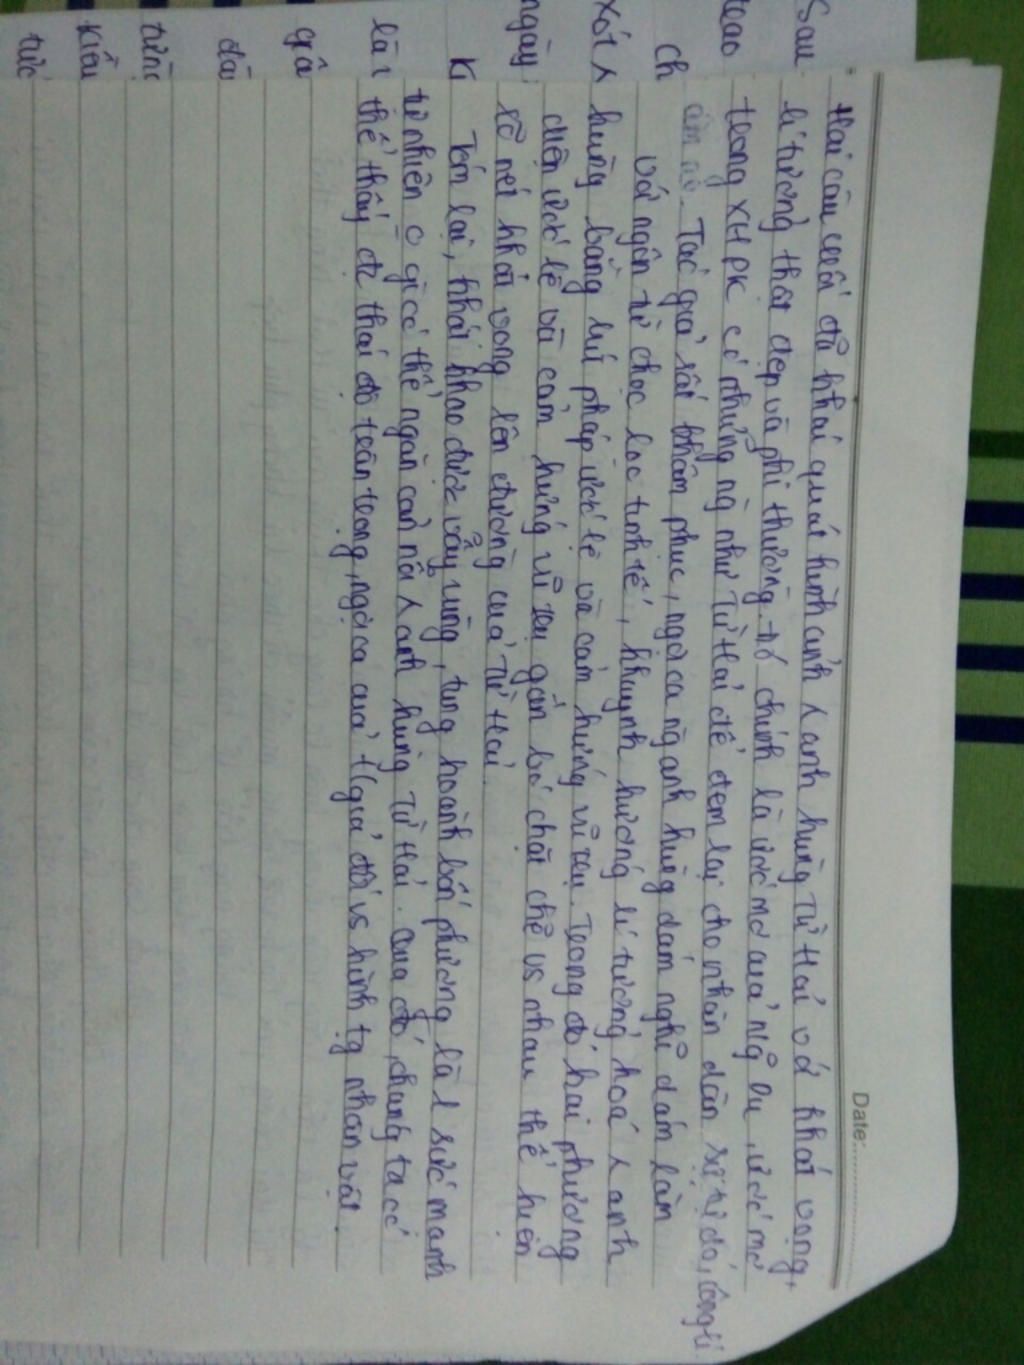 Sau
trao
ch
xót 1
ngày
K
là 1
đã
từng
Kiều
tước
Date:
Hai câu cuối đã khái quát hình ảnh 1 anh hùng Từ Hải với khát vọng,
lí tưởng thật đẹp và phi thường. nó chính là ước mơ của Ng Du, ước mơ
trong XHPK có những ng như Từ Hải để đem lại cho nhân dân sự tự do, công lí
ấm no. Tác giả rất khâm phục, ngợi ca ng anh hùng dám nghĩ dám làm
Với ngôn từ chọc lọc tinh tế, khuynh hướng lí tưởng hoá 1 anh
hùng bằng bút pháp ước lệ và cảm hứng vũ trụ. Trong đó hai phương
diện ước lệ và cảm hứng vũ trụ gắn bó chặt chẽ vs nhau thể hiện
rõ nét khát vọng lên đường của Từ Hải.
Tóm lại, khát khao được vẫy vùng, tung hoành bốn phương là 1 sức mạnh
tự nhiên o gì có thể ngăn cản nổi 1 anh hùng Từ Hải. Qua đó, chúng ta có
thể thấy đc thái độ trân trọng, ngợi ca của t/giả đối vs hình tg nhân vật.